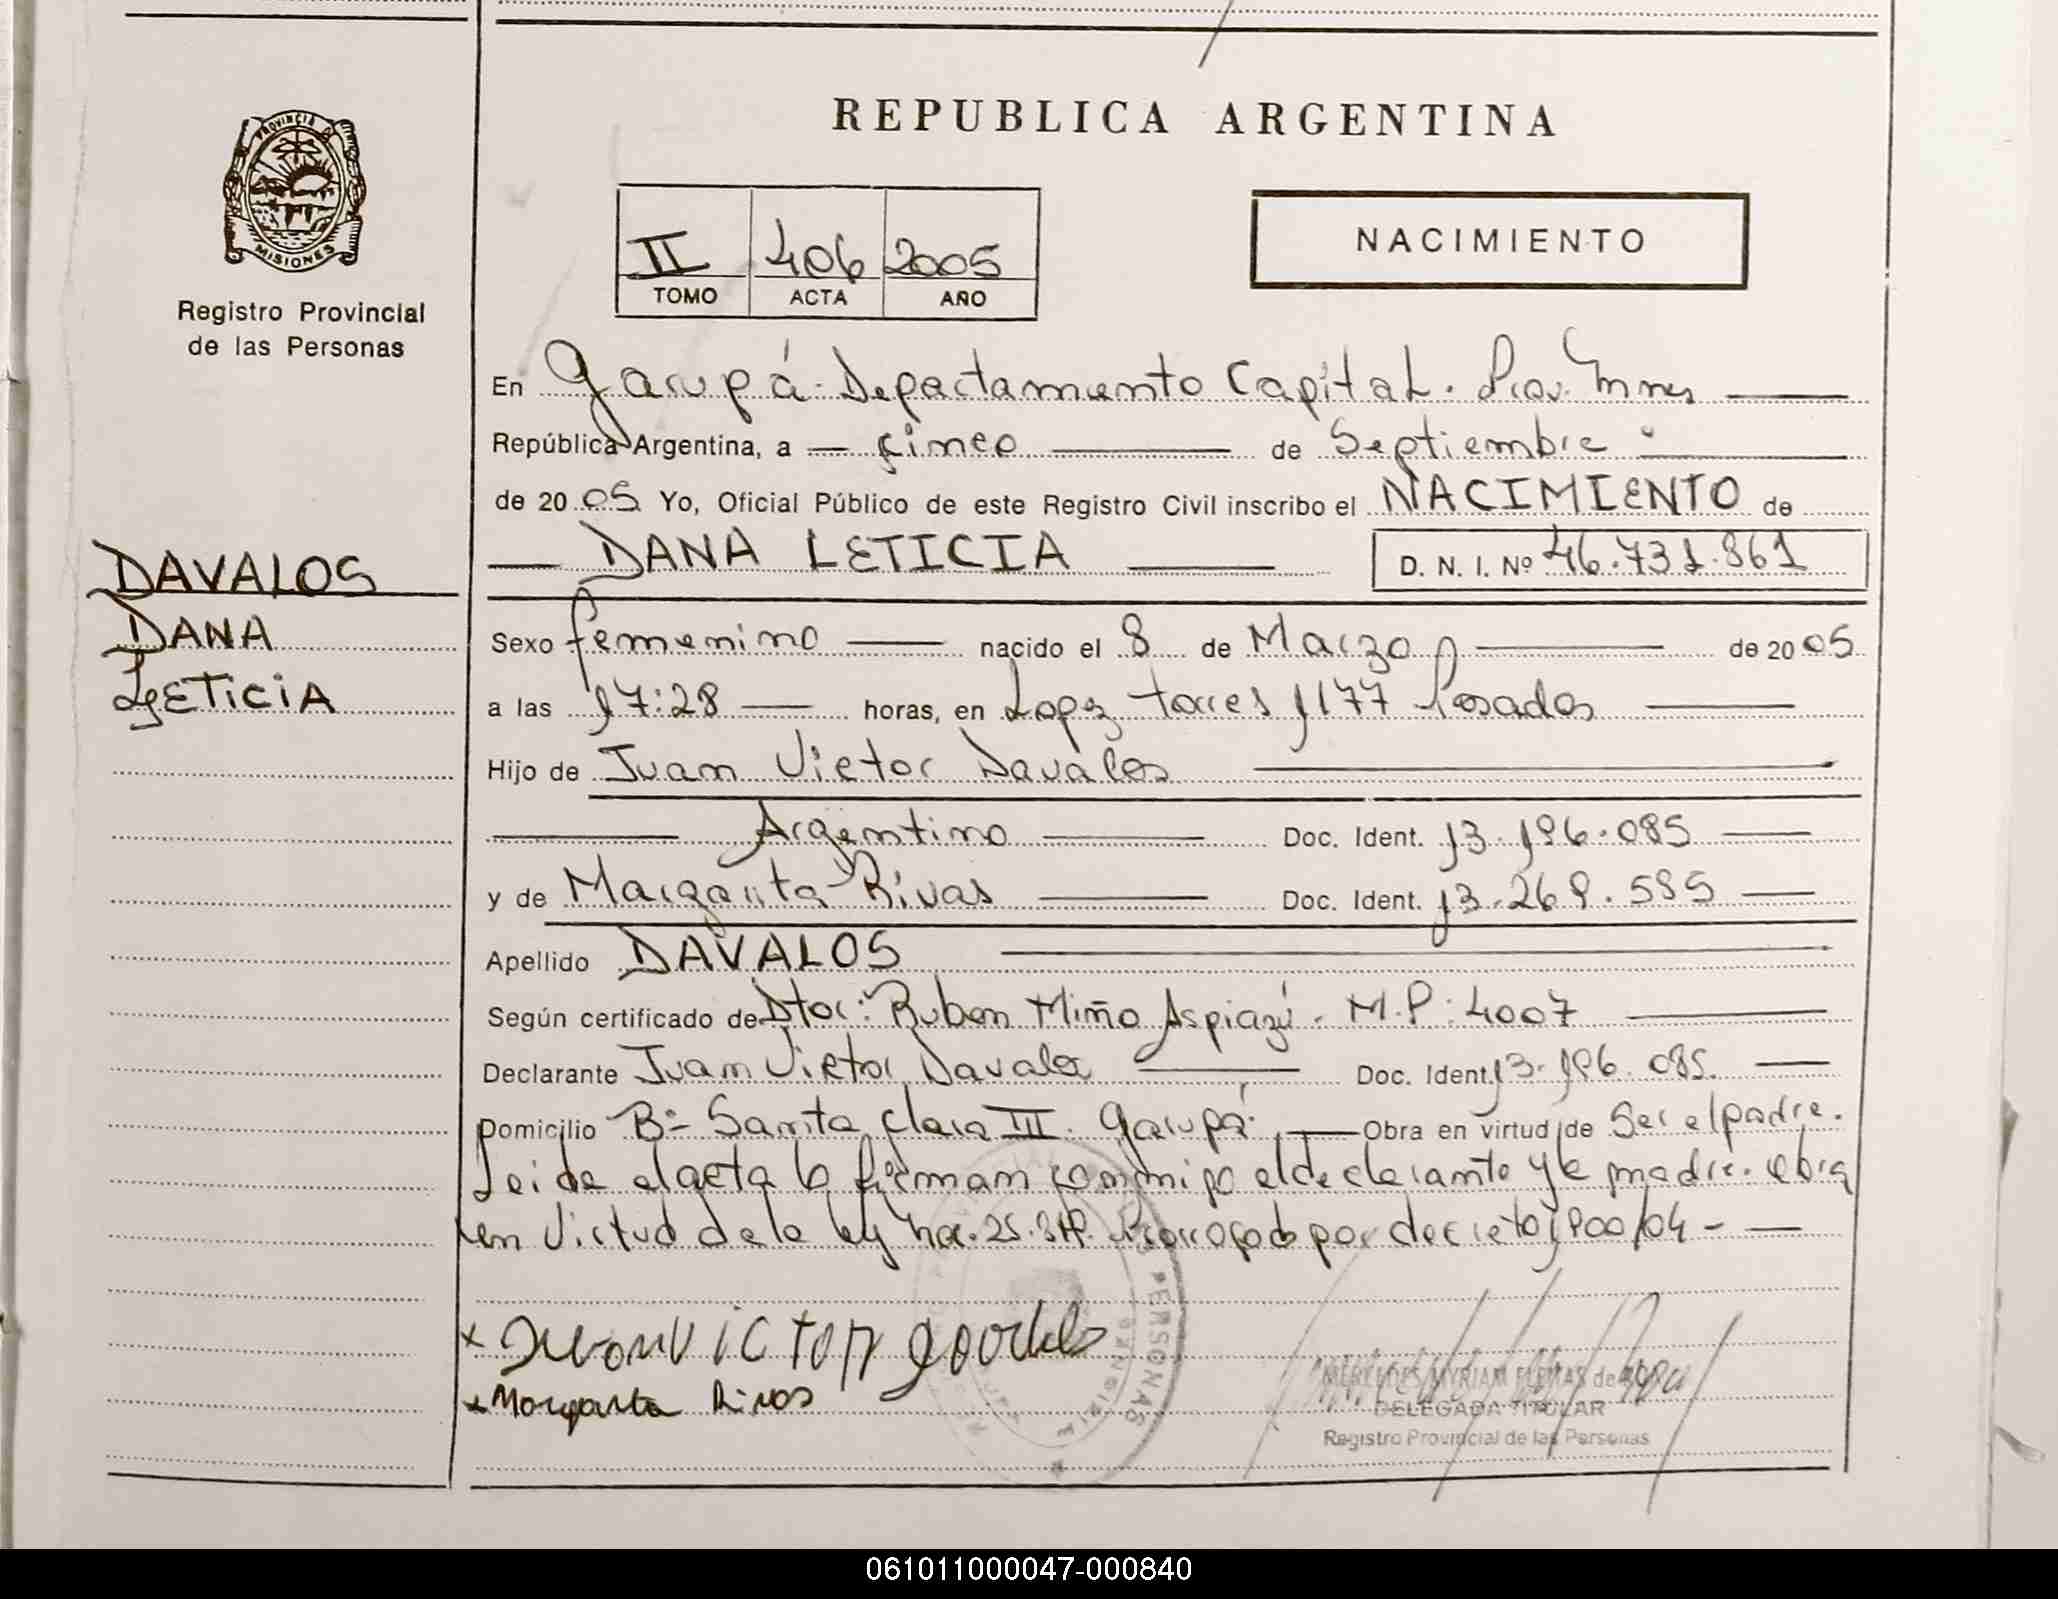 REPUBLICA ARGENTINA
PROVINCIA D
MISIONES
Registro Provincial
de las Personas
II 406 2005
TOMO ACTA AÑO
NACIMIENTO
En Garupá Departamento Capital. Prov. Mnes
República Argentina, a cinco de Septiembre
de 2005 Yo, Oficial Público de este Registro Civil inscribo el NACIMIENTO de
DANA LETICIA D. N. I. Nº 46.731.861
DAVALOS
DANA
LETICIA
Sexo femenino nacido el 8 de Marzo de 2005
a las 17:28 horas, en Lopez torres 1177 Posadas
Hijo de Juan Victor Davalos
Argentino Doc. Ident. 13.196.085
y de Margarita Rivas Doc. Ident. 13.269.595
Apellido DAVALOS
Según certificado de Dtor: Ruben Miño Aspiazú. M.P: 4007
Declarante Juan Victor Davalos Doc. Ident. 13.196.085.
Domicilio Bº Santa Clara III. Garupá. Obra en virtud de Ser el padre.
Leida el acta la firman conmigo el declarante y la madre. obra
en Virtud de la ley nac. Prorrogado por decreto 1900/04
x Juan victor davalos
x Margarita Rivas
PERSONAS
MERCEDES MYRIAM de
DELEGADA TITULAR
Registro Provincial de las Personas
061011000047-000840